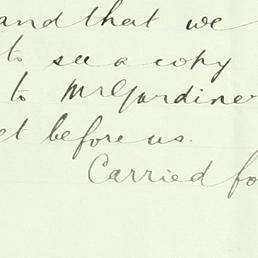 and that we
to see a copy
to Mr Gardiner
et before us.
Carried fo